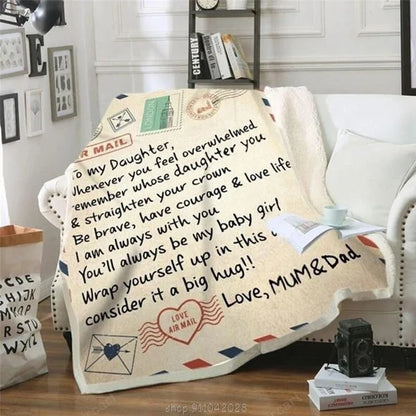 CENTURY
LONDON
AIR MAIL
To my Daughter,
Whenever you feel overwhelmed
remember whose daughter you
& straighten your crown
Be brave, have courage & love life
I am always with you
You'll always be my baby girl
Wrap yourself up in this
consider it a big hug!!
Love, MUM&Dad
LOVE
AIR MAIL
shop 911042028